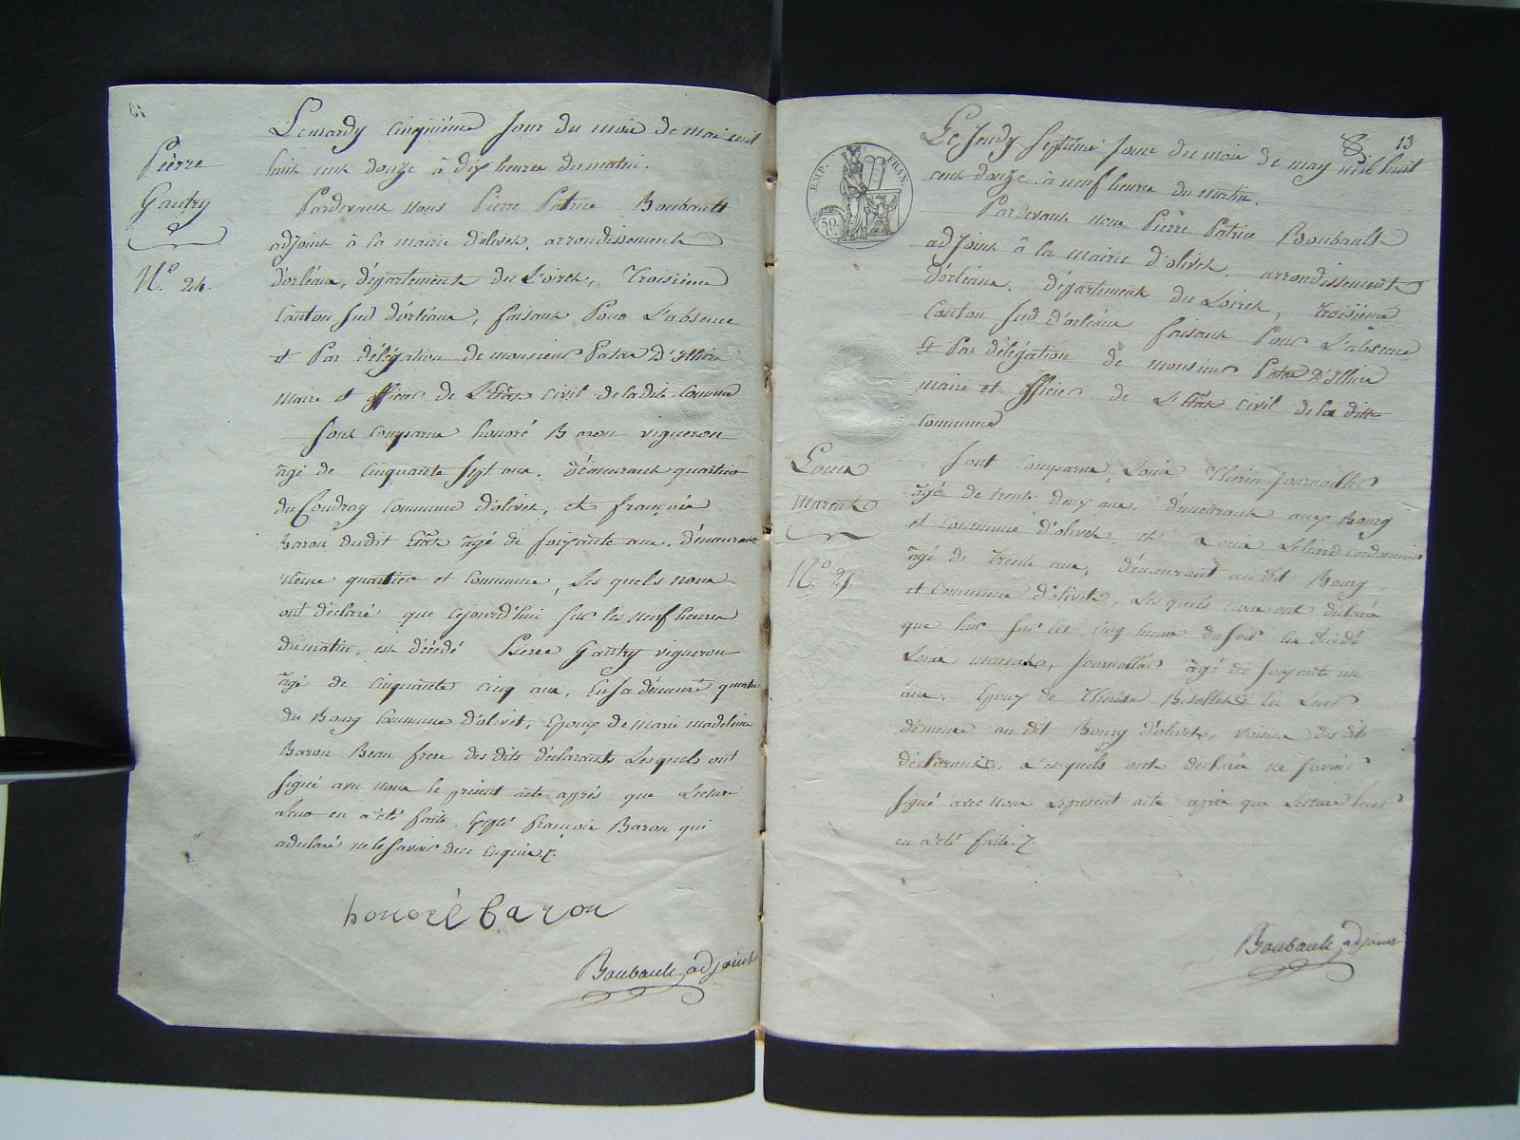 Pierre
Gautry
N.º 24.
Le mardy cinquième Jour du mois de mai mil
huit cent douze à dix heures du matin.
Pardevant nous Pierre Patrice Boubault
adjoint à la mairie d'olivet, arrondissement
d'orléans, département du Loiret, Troisième
Canton Sud d'orléans, faisant Pour L'absence
et Par délégation de monsieur
maire et officier de L'Etat civil de la dite Commune
Sont Comparus honoré Baron vigneron
âgé de Cinquante Sept ans, Démeurant quartier
du Coudray Commune d'olivet, et françois
Baron dudit Etat âgé de Soixante ans, démeurant
même quartier et Commune, Les quels nous
ont déclaré que cejourd'hui Sur les neuf heures
du matin, est décédé Pierre Gautry vigneron
âgé de Cinquante cinq ans, En Sa démeure quartier
du Bourg Commune d'olivet, Epoux de marie madeleine
Baron Beau frere des dits déclarants Les quels ont
Signé avec nous le présent acte après que Lecture
leur en a été faite, Excepté françois Baron qui
a déclaré ne le Savoir de ce Enquis.
honoré baron
Boubault adjoint
13
EMP. FRAN.
Le Jeudy Septième Jour du mois de may mil huit
cent douze à neuf heures du matin.
Pardevant nous Pierre Patrice Boubault
adjoint à la mairie d'olivet, arrondissement
d'orléans, département du Loiret, troisième
Canton Sud d'orléans faisant Pour L'absence
et Par délégation de monsieur
maire et officier de L'Etat civil de la ditte
Commune
Louis
N.º 25.
Sont Comparus, Louis Journallier
âgé de trente deux ans, démeurant aux Bourg
et Commune d'olivet, et Louis cordonnier
âgé de Trente ans, démeurant au dit Bourg
et Commune d'olivet, Les quels nous ont déclaré
que hier Sur les cinq heures du Soir est décédé
Louis Journallier âgé de Soixante un
ans, Epoux de Thérèse En Sa
démeure au dit Bourg d'olivet, voisin des dits
déclarants, Lesquels ont déclaré ne Savoir
Signé avec nous le présent acte après que Lecture leur
en a été faite.
Boubault adjoint